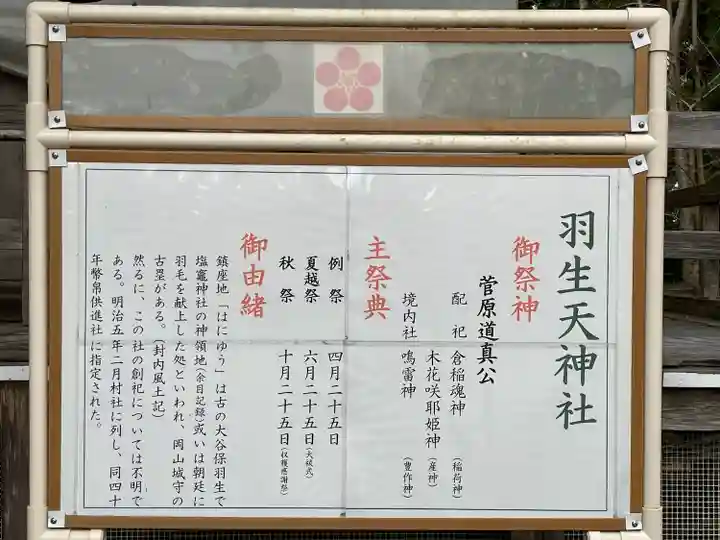 羽生天神社
御祭神
菅原道真公
配祀 倉稲魂神 (稲荷神)
木花咲耶姫神 (産神)
境内社 鳴雷神 (豊作神)
主祭典
例祭 四月二十五日
夏越祭 六月二十五日(大祓式)
秋祭 十月二十五日(収穫感謝祭)
御由緒
鎮座地「はにゆう」は古の大谷保羽生で
塩竈神社の神領地(余目記録)或いは朝廷に
羽毛を献上した処といわれ、岡山城守の
古塁がある。(封内風土記)
然るに、この社の創祀については不明で
ある。明治五年二月村社に列し、同四十
年幣帛供進社に指定された。